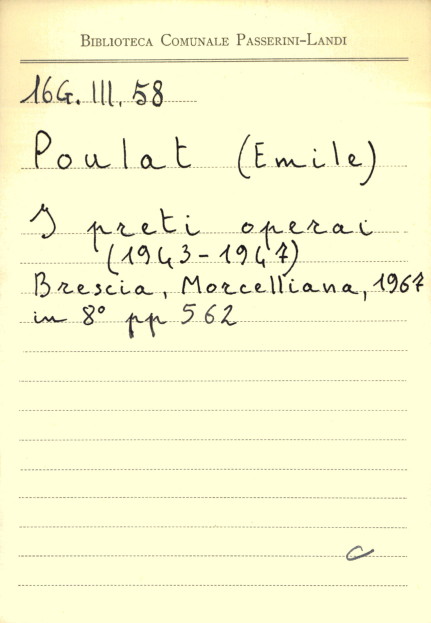 Biblioteca Comunale Passerini-Landi
16G. III. 58
Poulat (Emile)
I preti operai
(1943-1947)
Brescia, Morcelliana, 1967
in 8° pp 562
C